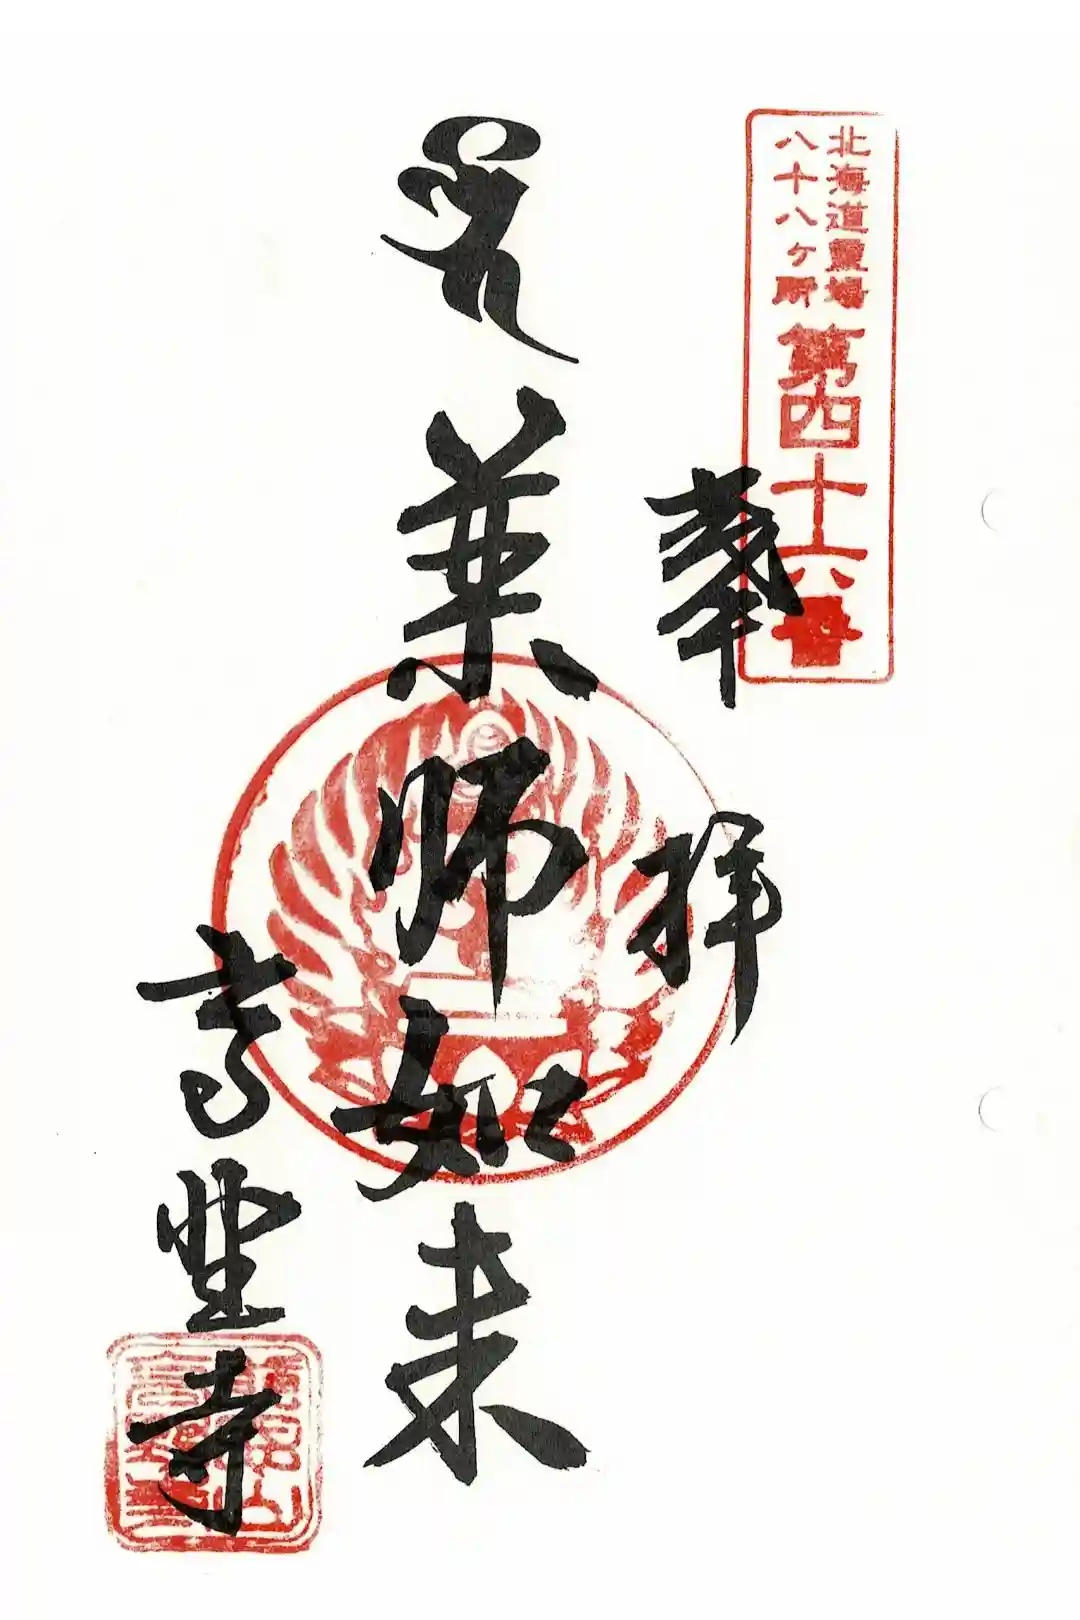 北海道霊場
八十八ヶ所
第四十六番
奉拝
薬師如来
高
寺